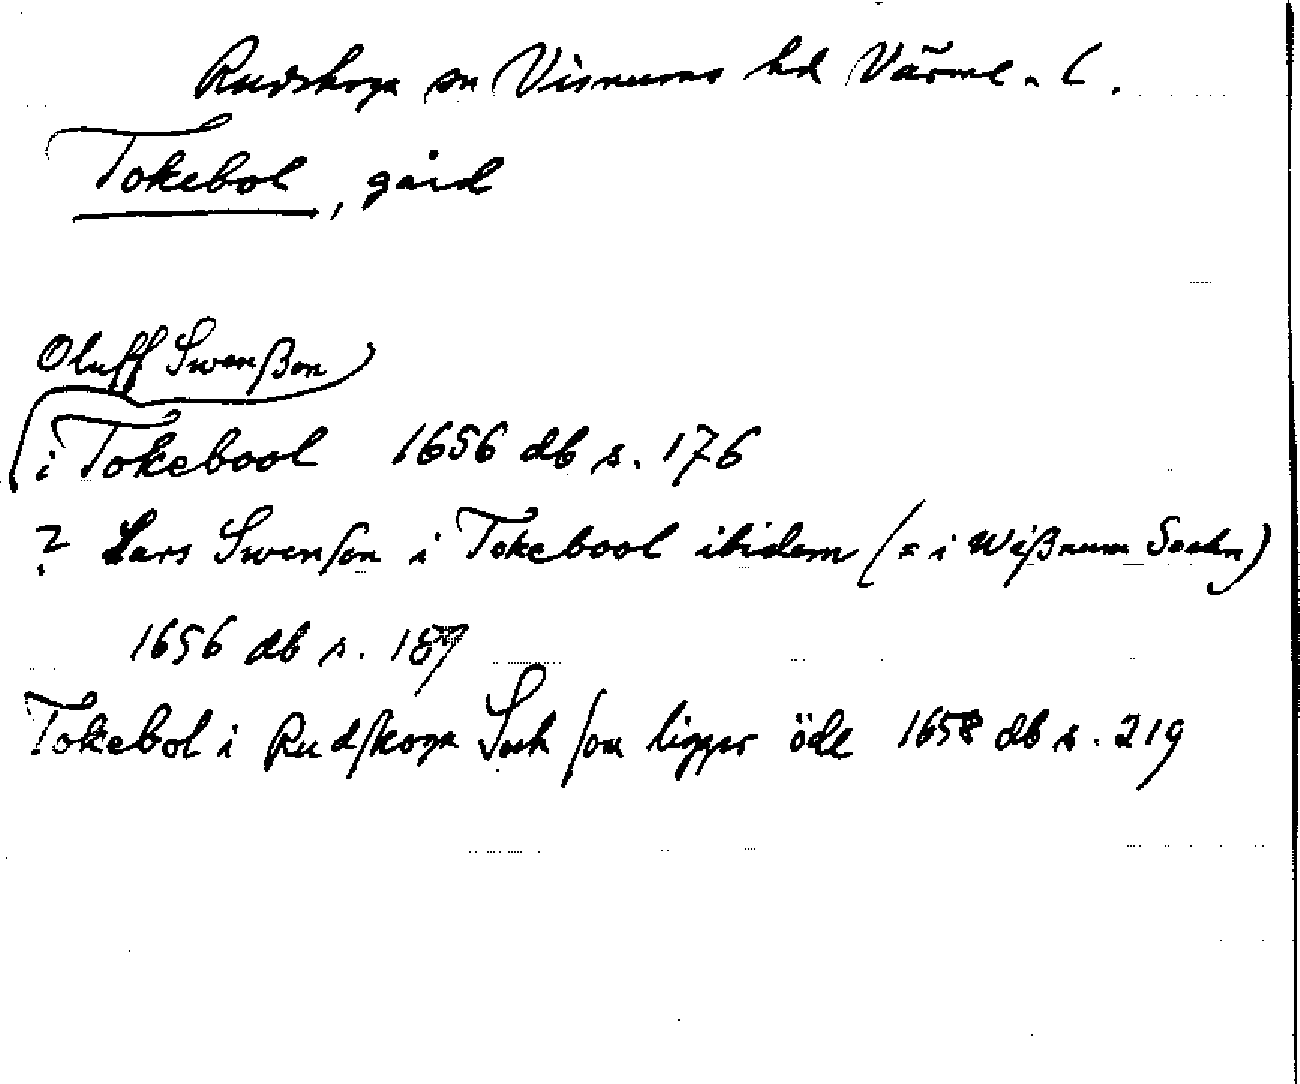 Rudskoga sn Visnums hd Värml. l.
Tokebol, gård
Oluff Swenßon
i Tokebool 1656 db s. 176
? Lars Swenson i Tokebool ibidem (= i Wißnum Sochn)
1656 db s. 187
Tokebol i Rudskoga Soch som ligger öde 1658 db s. 219